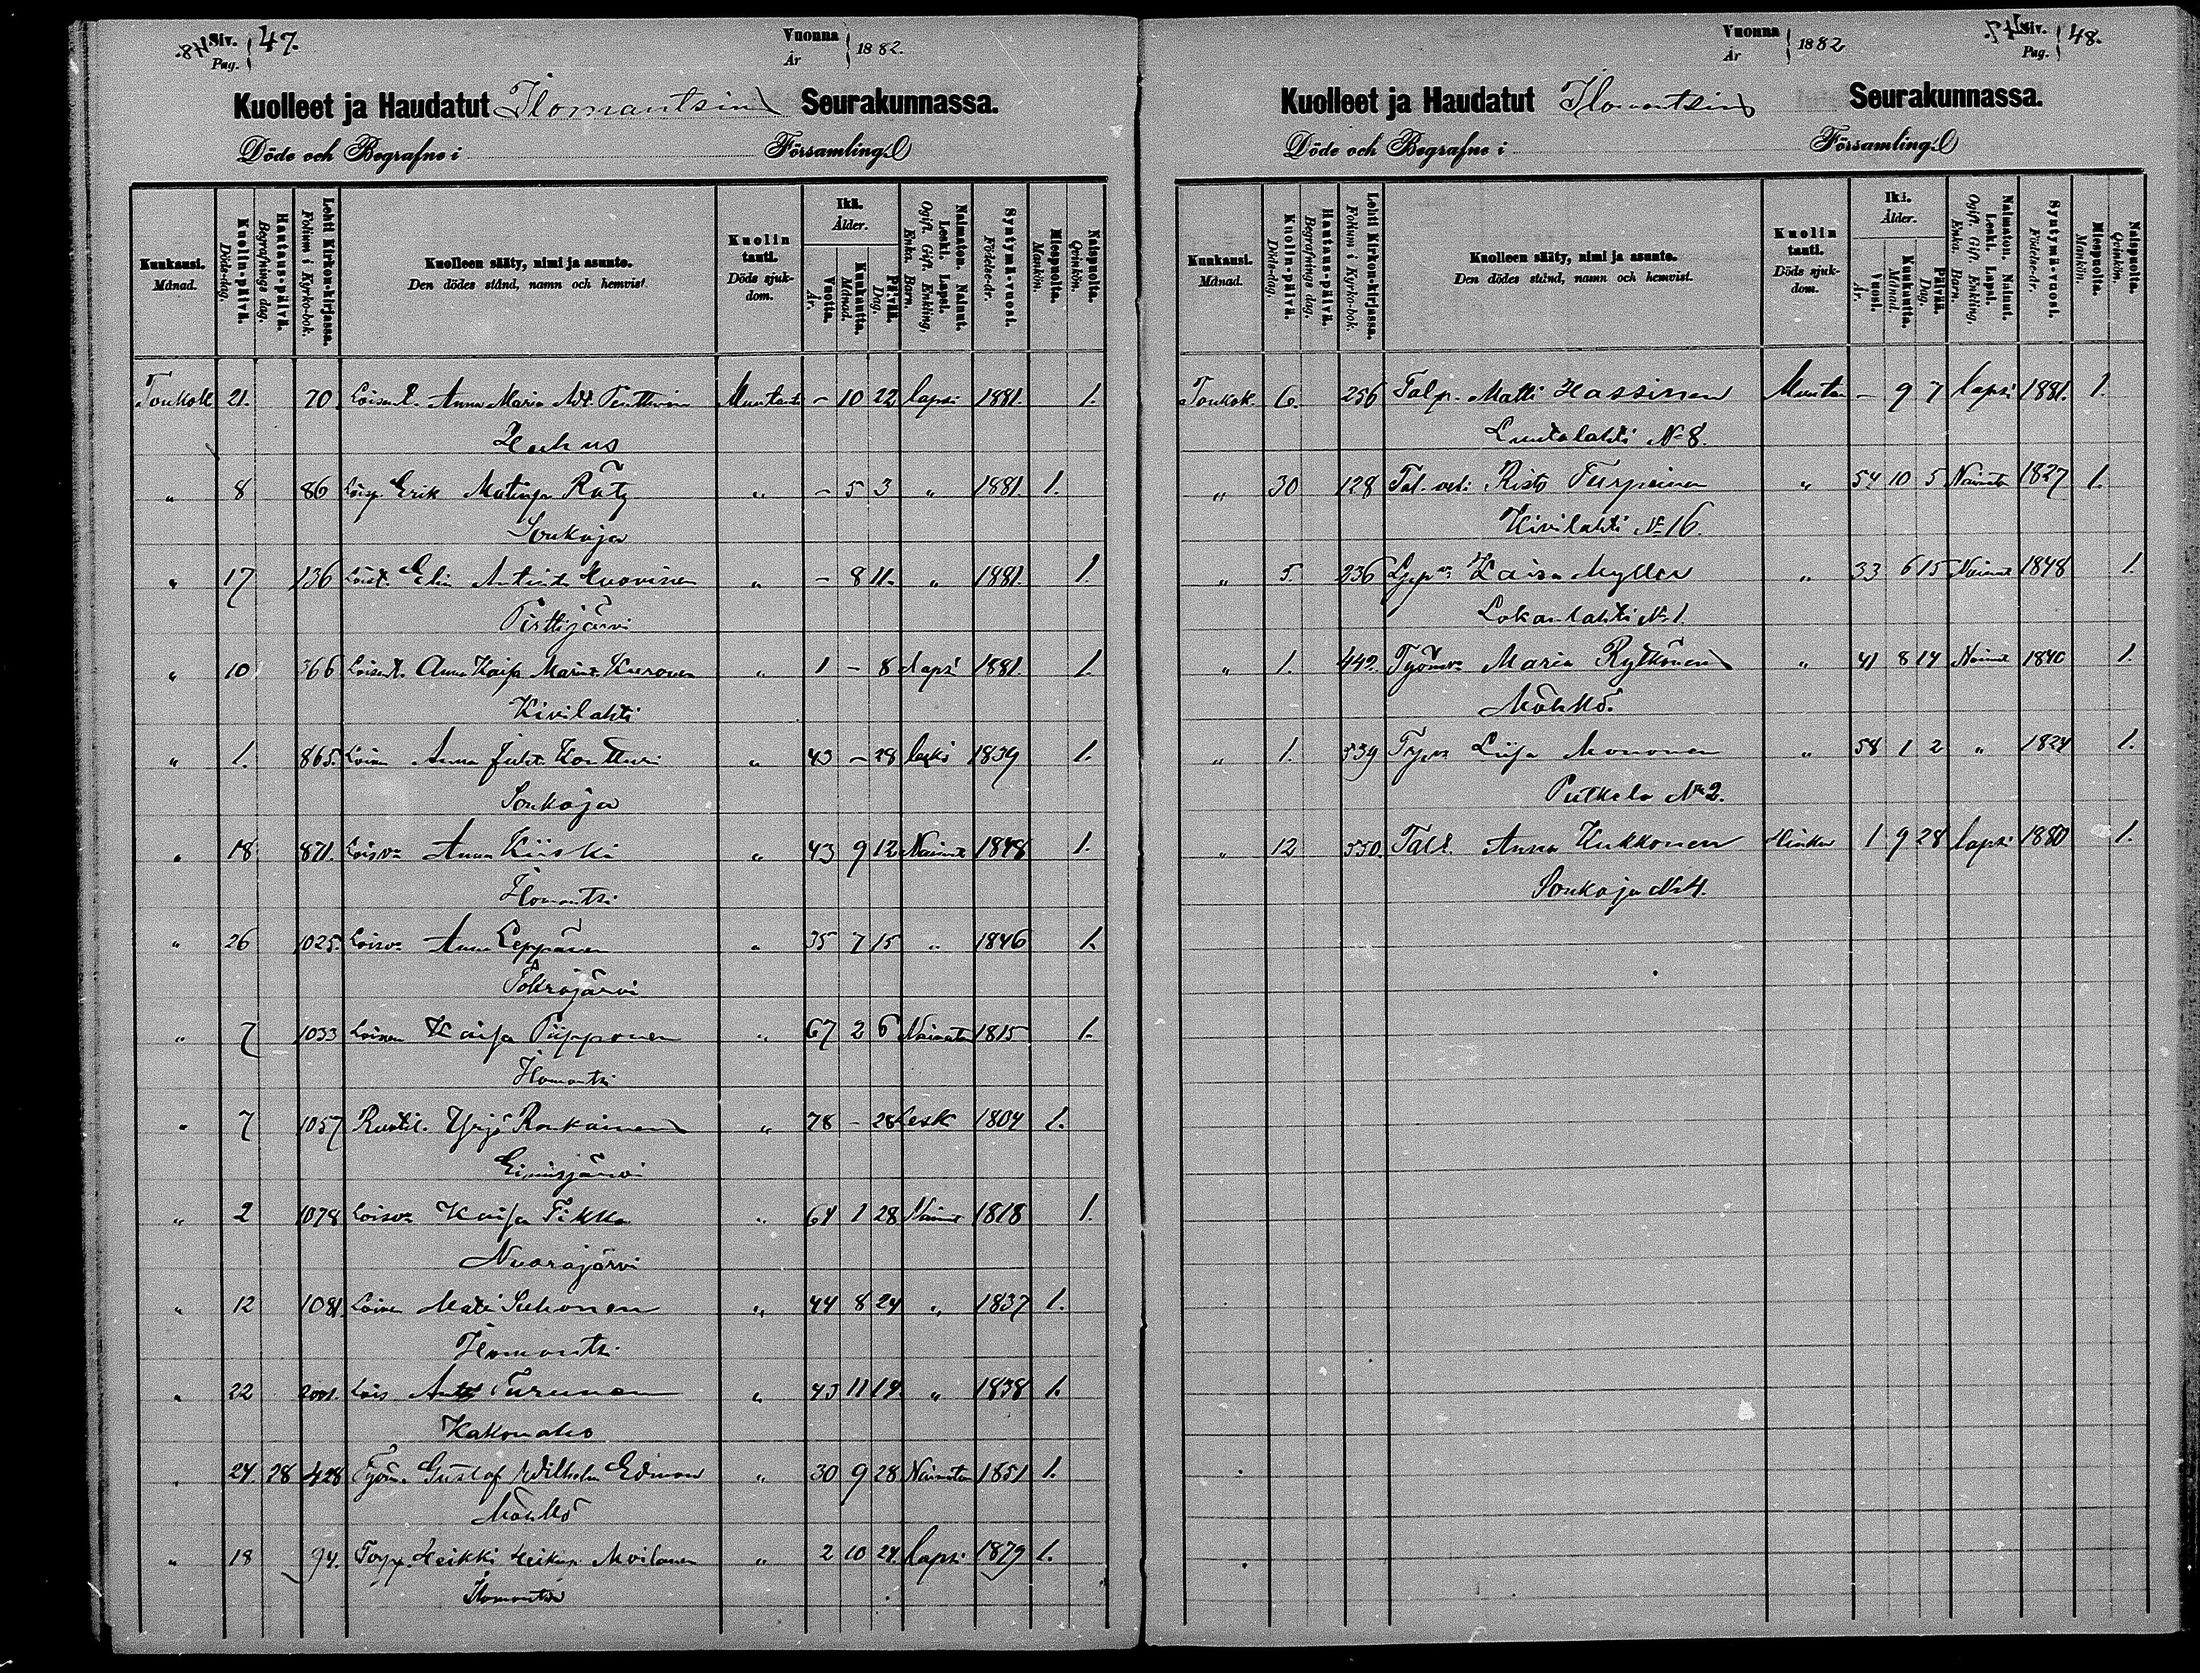 Siv. Pag. 47.
Vuonna År 1882.
Kuolleet ja Haudatut Ilomantsin Seurakunnassa.
Döde och Begrafne i Församling.
Kuukausi. Månad.
Kuolin-päivä. Döds-dag.
Hautaus-päivä. Begrafnings dag.
Lehti Kirkon-kirjassa. Folium i Kyrko-bok.
Kuolleen sääty, nimi ja asunto. Den dödes stånd, namn och hemvist.
Kuolin tauti. Döds sjukdom.
Ikä. Ålder.
Vuotta. År.
Kuukautta. Månad.
Päivää. Dag.
Naimaton. Nainut. Leski. Lapsi. Ogift. Gift. Enkling, Enka. Barn.
Syntymä-vuosi. Födelse-år.
Miespuolta. Mankön.
Naispuolta. Qvinkön.
Toukok 21. 70. Anna Maria – 10 22 lapsi 1881. 1.
Huhus
" 8 86 Erik Matinp. Räty " – 5 3 " 1881. 1.
Sonkaja
" 17 136 Elin Antint. Kuovinen " – 8 11. " 1881. 1.
Pirttijärvi
" 10 366 Anna Kaisa " 1 – 8 lapsi 1881. 1.
Kivilahti
" 1. 865. Loinen Anna Juht. Kontturi " 43 – 28 leski 1839 1.
Sonkaja
" 18 871. Loisva Anna Kiiski " 43 9 12 Nainut 1848 1.
Ilomantsi
" 26 1025. Loisva Anna Leppänen " 35 7 15 " 1846 1.
Tokrajärvi
" 7 1033 Loinen Kaisa Piipponen " 67 2 6 Naimaton 1815 1.
Ilomantsi
" 7 1057 Ruotil. Yrjö Ronkainen " 78 – 28 Lesk 1804 1.
Eimisjärvi
" 2 1078 Loisva Kaisa Tikka " 64 1 28 Nainut 1818 1.
Nuorajärvi
" 12 1081. Loinen Matti Suhonen " 44 8 24 " 1837 1.
Ilomantsi
" 22 2001. Lois Antti Turunen " 43 11 14 " 1838 1.
Kakonaho
" 24 28 428 Työm. Gustaf Wilhelm Edman " 30 9 28 Naimaton 1851 1.
Möhkö
" 18 94. Torpp. Heikki Heikinp. Moilanen " 2 10 24. lapsi 1879 1.
Ilomantsi
Vuonna År 1882
Siv. Pag. 48.
Kuolleet ja Haudatut Ilomantsin Seurakunnassa.
Döde och Begrafne i Församling.
Kuukausi. Månad.
Kuolin-päivä. Döds-dag.
Hautaus-päivä. Begrafnings dag.
Lehti Kirkon-kirjassa. Folium i Kyrko-bok.
Kuolleen sääty, nimi ja asunto. Den dödes stånd, namn och hemvist.
Kuolin tauti. Döds sjukdom.
Ikä. Ålder.
Vuosi. År.
Kuukautta. Månad.
Päivää. Dag.
Naimaton. Nainut. Leski. Lapsi. Ogift. Gift. Enkling, Enka. Barn.
Syntymä-vuosi. Födelse-år.
Miespuolta. Mankön.
Naispuolta. Qvinkön.
Toukok. 6. 256 Talp. Matti Hassinen – 9 7 lapsi 1881. 1.
Luutalahti No 8.
" 30 128 Tal. veli Risto Turpeinen " 54 10 5 1827 1.
Kivilahti No 16.
" 5. 236 Kaisa Myller " 33 6 15 Nainut 1848 1.
Lokanlahti No 1.
" 1. 442. Maria Rytkönen " 41 8 14 Nainut 1840 1.
Möhkö.
" 1. 539 Liisa Mononen " 58 1 2 " 1824 1.
Putkela No 2.
" 12 550. Talt. Anna Kukkonen 1 9 28 lapsi 1880 1.
Sonkaja No 4.